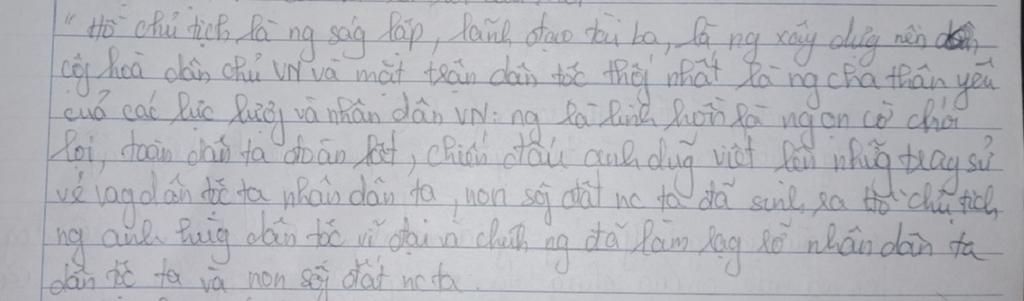 "Hồ chủ tịch là ng ság lập, lãnh đạo tài ba, là ng xây dựg nên
cộg hoà dân chủ VN và mặt trận dân tộc thốg nhất là ng cha thân yêu
cuả các lực lượg và nhân dân VN: ng là linh hồn là ngọn cờ chói
lọi, toàn dân ta đoàn kết, chiến đấu anh dũg viết lên nhữg trag sử
vẻ vag dân tộc ta nhân dân ta, non sôg đất nc ta đã sinh ra Hồ chủ tịch,
ng anh hùg dân tộc vĩ đại chính ng đã làm rạg rỡ nhân dân ta
dân tộc ta và non sôg đất nc ta.